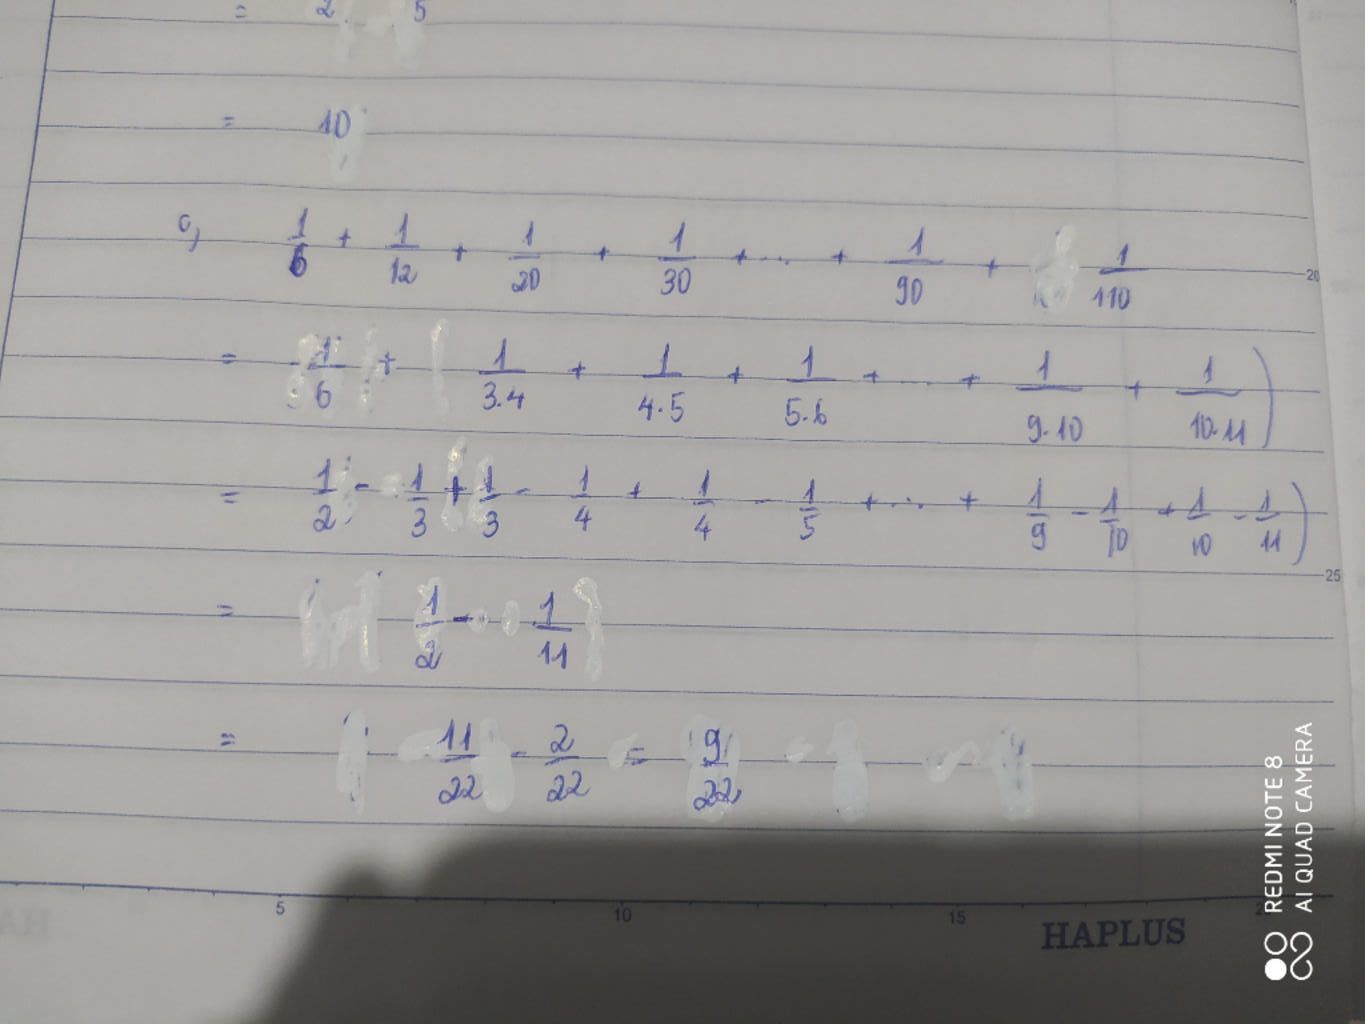 = 2 5
= 10
c, 1/6 + 1/12 + 1/20 + 1/30 + ... + 1/90 + 1/110
= 1/6 + 1/3.4 + 1/4.5 + 1/5.6 + ... + 1/9.10 + 1/10.11 )
= 1/2 - 1/3 + 1/3 - 1/4 + 1/4 - 1/5 + ... + 1/9 - 1/10 + 1/10 - 1/11 )
= 1/2 - 1/11
= 11/22 - 2/22 = 9/22
20
25
5 10 15
HAPLUS
REDMI NOTE 8
AI QUAD CAMERA